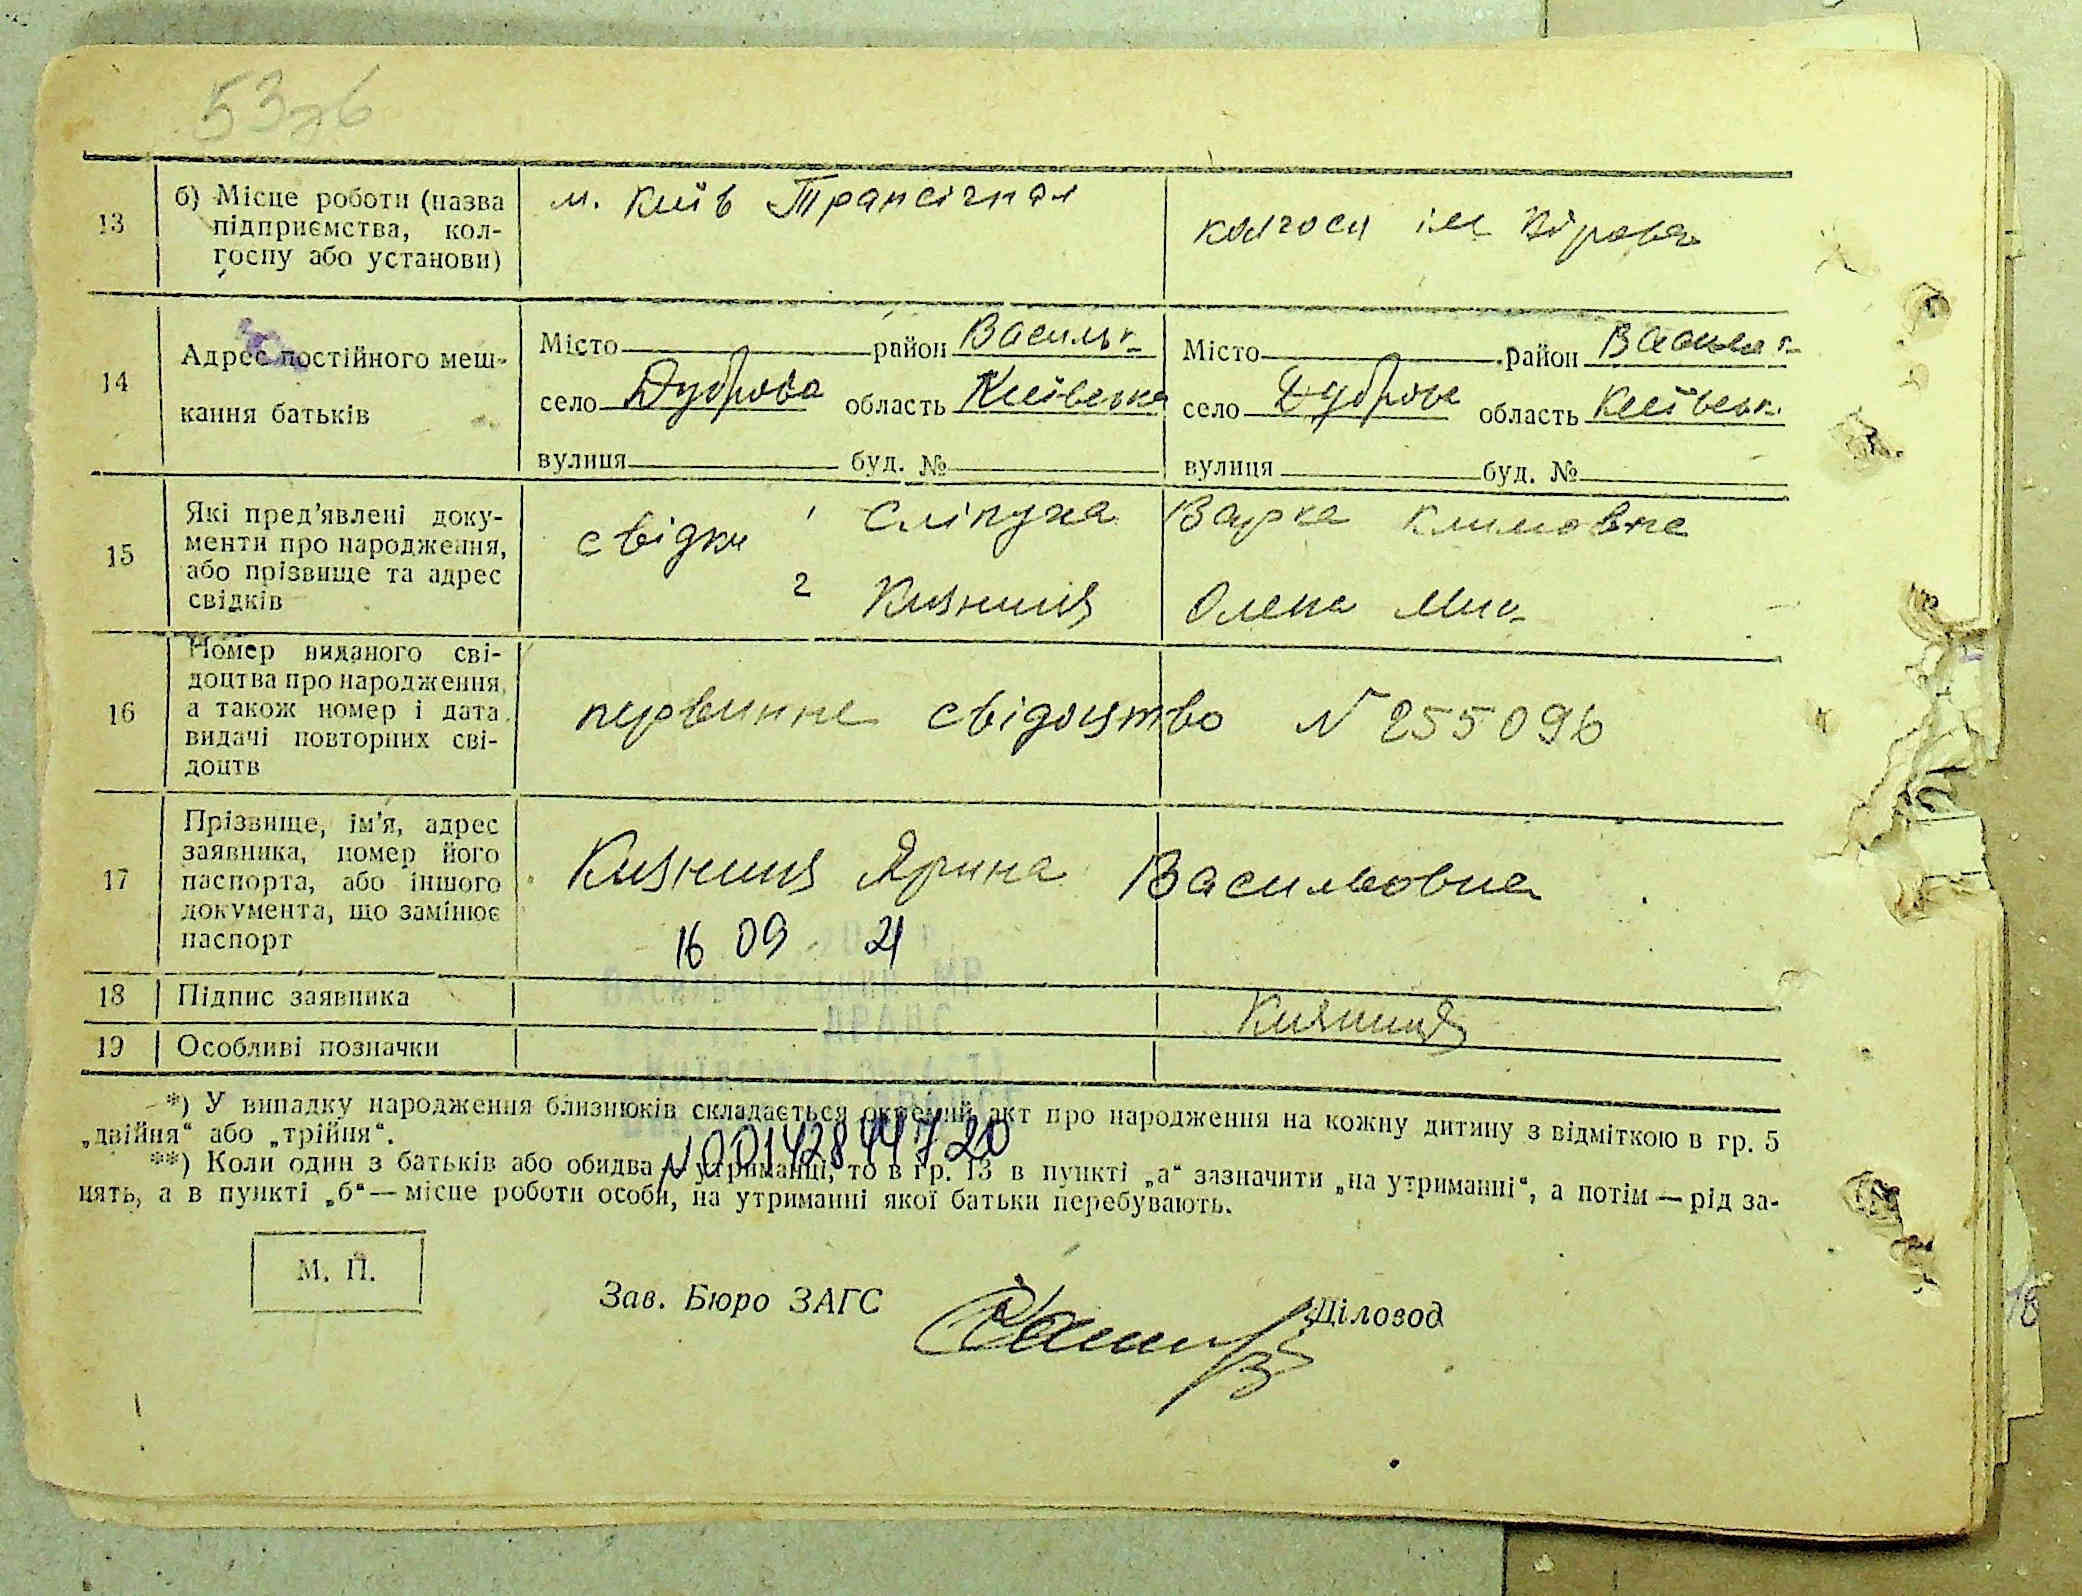 53зб
13
б) Місце роботи (назва
підприємства, кол-
госпу або установи)
м. Київ Трансігнал
колгосп ім Кірова
14
Адрес постійного меш-
кання батьків
Місто район Васильк
село Дуброва область Київська
вулиця буд. №
Місто район Васильк
село Дуброва область Київськ.
вулиця буд. №
15
Які пред'явлені доку-
менти про народження,
або прізвище та адрес
свідків
свідки 1 Сліпуха Варка Климовна
2 Княниця Олена Мик
16
Номер виданого сві-
доцтва про народження,
а також номер і дата
видачі повторних сві-
доцтв
первинне свідоцтво № 255096
17
Прізвище, ім'я, адрес
заявника, номер його
паспорта, або іншого
документа, що замінює
паспорт
Княниця Ярина Васильовна
16 09 21
18 Підпис заявника
Княниця
19 Особливі позначки
*) У випадку народження близнюків складається окремий акт про народження на кожну дитину з відміткою в гр. 5
„двійня“ або „трійня“.
№00142844720
**) Коли один з батьків або обидва на утриманні, то в гр. 13 в пункті „а“ зазначити „на утриманні“, а потім — рід за-
нять, а в пункті „б“ — місце роботи особи, на утриманні якої батьки перебувають.
М. П.
Зав. Бюро ЗАГС
Діловод